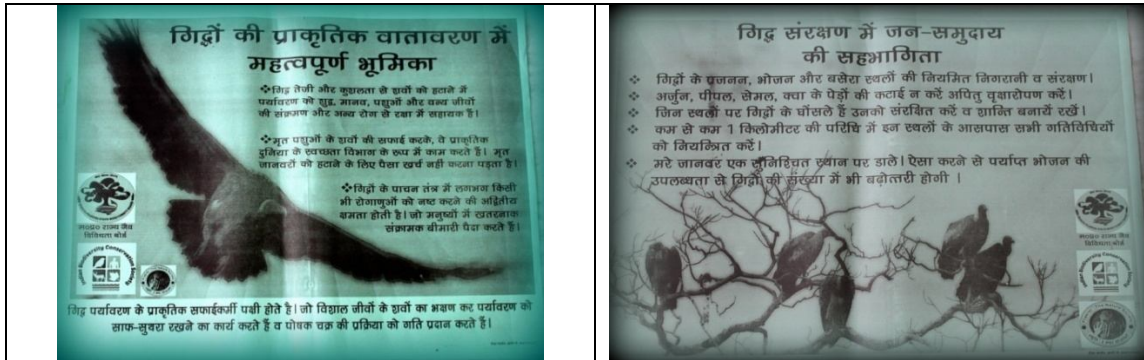 गिद्धों की प्राकृतिक वातावरण में
महत्वपूर्ण भूमिका
❖गिद्ध तेज़ी और कुशलता से शवों को हटाने में
पर्यावरण को शुद्ध, मानव, पशुओं और वन्य जीवों
की संक्रमण और अन्य रोग से रक्षा में सहायक है।
❖मृत पशुओं के शवों की सफाई करके, वे प्राकृतिक
दुनिया के स्वच्छता विभाग के रूप में काम करते है। मृत
जानवरों को हटाने के लिए पैसा खर्च नही करना पड़ता है।
❖गिद्धों के पाचन तंत्र में लगभग किसी
भी रोगाणुओं को नष्ट करने की अद्वितीय
क्षमता होती है। जो मनुष्यों में खतरनाक
संक्रामक बीमारी पैदा करते है।
म०प्र० राज्य जैव
विविधता बोर्ड
गिद्ध पर्यावरण के प्राकृतिक सफाईकर्मी पक्षी होते है। जो विशाल जीवों के शवों का भक्षण कर पर्यावरण को
साफ-सुथरा रखने का कार्य करते हैं व पोषक चक्र की प्रक्रिया को गति प्रदान करते है।
गिद्ध संरक्षण में जन-समुदाय
की सहभागिता
❖ गिद्दों के प्रजनन, भोजन और बसेरा स्थलों की नियमित निगरानी व संरक्षण।
❖ अर्जुन, पीपल, सेमल, क्वा के पेड़ों की कटाई न करें अपितु वृक्षारोपण करें।
❖ जिन स्थलों पर गिद्दों के घोंसले हैं उनको संरक्षित करें व शान्ति बनायें रखें।
❖ कम से कम 1 किलोमीटर की परिधि में इन स्थलों के आसपास सभी गतिविधियों
को नियन्त्रित करें।
❖ मरे जानवर एक सुनिश्चित स्थान पर डाले। ऐसा करने से पर्याप्त भोजन की
उपलब्धता से गिद्दों की संख्या में भी बढ़ोत्तरी होगी ।
म०प्र० राज्य जैव
विविधता बोर्ड